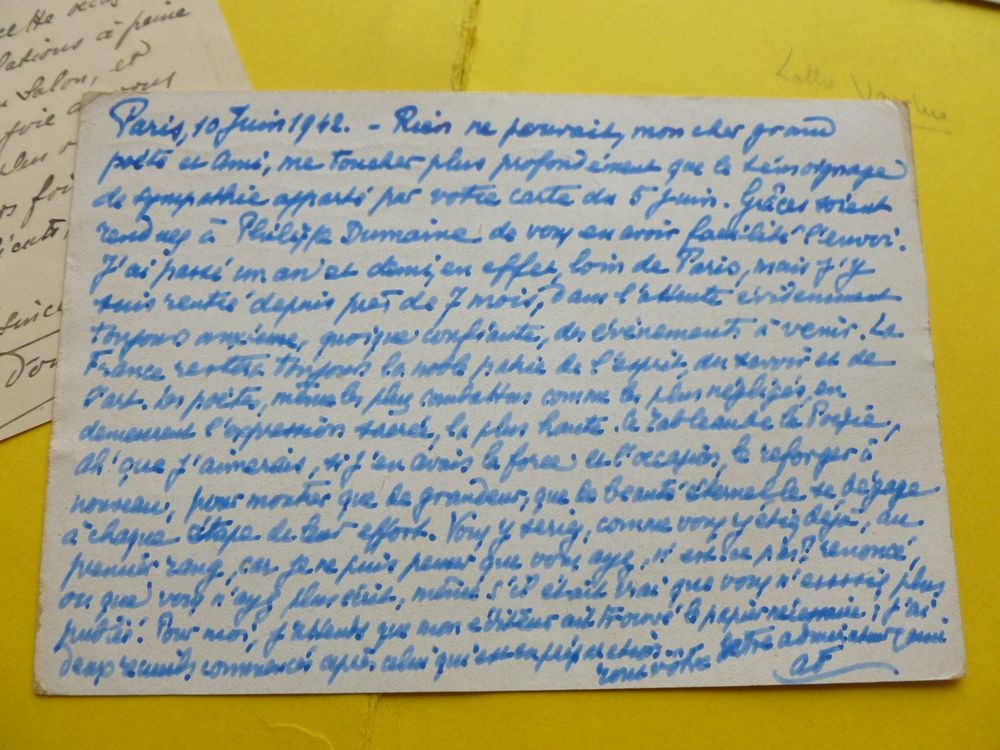 Lettre
ce
lations à peine
Salon, et
foie
fois
since
Paris, 10 Juin 1942. – Rien ne pouvait, mon cher grand
poète et Ami, me toucher plus profondément que le témoignage
de sympathie apporté par votre carte du 5 Juin. Grâces soient
rendues à Philippe Dumaine de vous en avoir facilité l'envoi.
J'ai passé un an et demi, en effet, loin de Paris, mais j'y
suis rentré depuis près de 7 mois, dans l'attente évidemment
toujours anxieuse, quoique confiante, des événements à venir. La
France restera toujours la noble patrie de l'esprit, du savoir et de
l'art. Les poètes, même les plus combattus comme les plus négligés, en
demeurent l'expression sacrée, la plus haute. Le Tableau de la Poésie,
ah! que j'aimerais, si j'en avais la force et l'occasion, le reforger à
nouveau, pour montrer que la grandeur, que la beauté éternelle se dégage
à chaque étape de leur effort. Vous y seriez, comme vous y étiez déjà, au
premier rang, car je ne puis penser que vous ayez, n'est-ce pas? renoncé,
ou que vous n'ayez plus écrit, même s'il était vrai que vous n'eussiez plus
publié! Pour moi, j'attends que mon éditeur ait trouvé le papier nécessaire; j'ai
deux recueils commencés après celui qui est
votre admirateur ami
AF